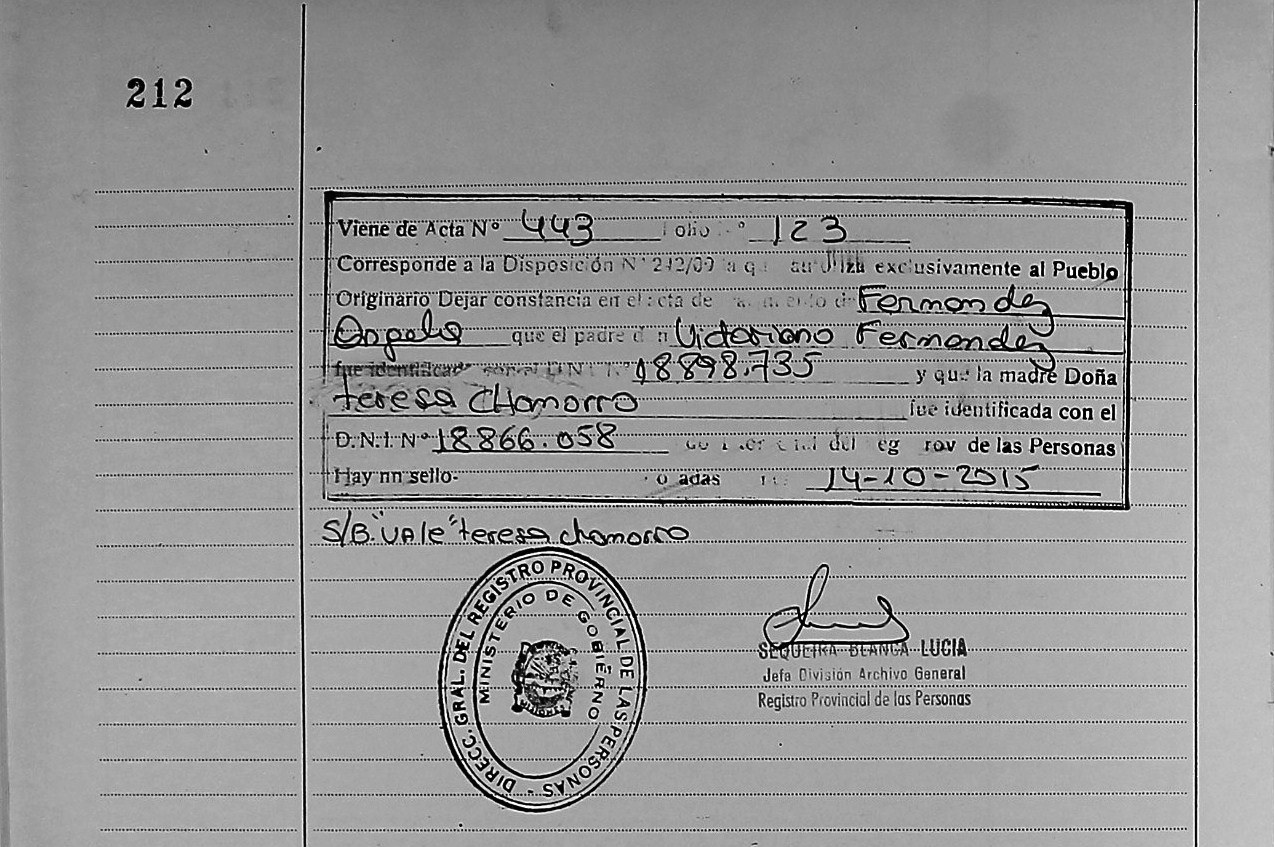 212
Viene de Acta Nº 443 Folio Nº 123
Corresponde a la Disposición Nº 242/09 a que autoriza exclusivamente al Pueblo
Originario Dejar constancia en el acta de de Fernandez
que el padre don Victoriano Fernandez
fue identificado con el D.N.I. Nº 18898.735 y que la madre Doña
teresa CHamorro fue identificada con el
D.N.I. Nº 18866.058 del Reg Prov de las Personas
Hay un sello- Posadas 14-10-2015
S/B. "VAle" teresa chamorro
DIRECC. GRAL. DEL REGISTRO PROVINCIAL DE LAS PERSONAS -
MINISTERIO DE GOBIERNO
MISIONES
SEQUEIRA BLANCA LUCIA
Jefa División Archivo General
Registro Provincial de las Personas